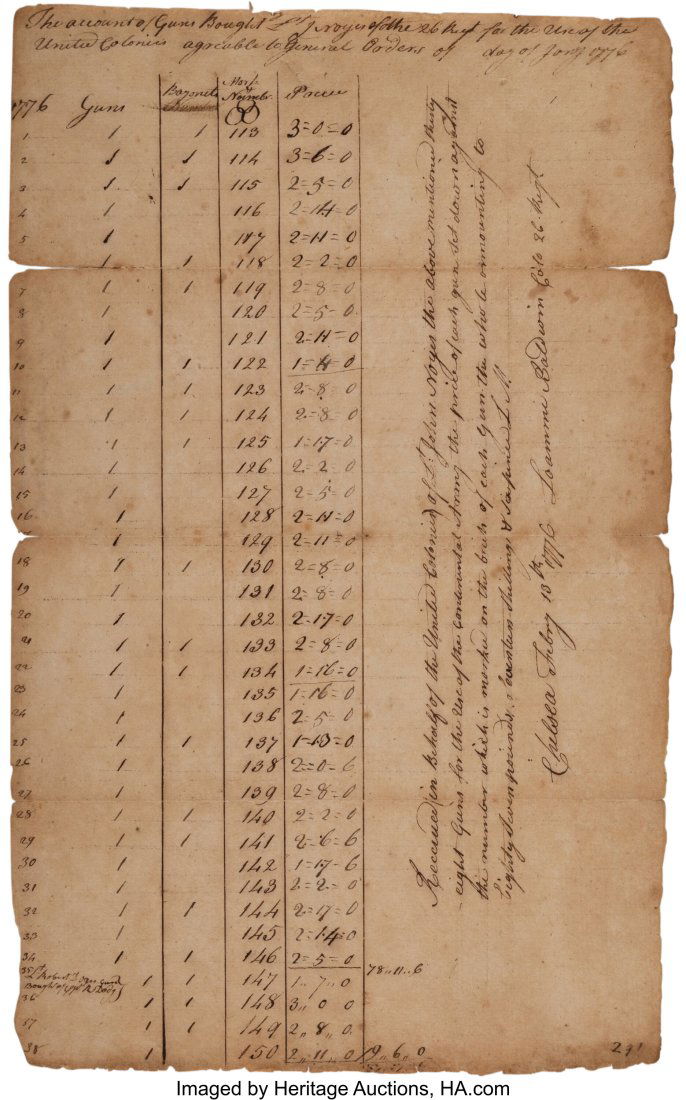 The account of Guns Bought by J Noyes of the 26 Regt for the Use of the
United Colonies agreable to General Orders of day of Jany 1776
1776 Guns Bayonets Price
1 1 1 113 3=0=0
2 1 1 114 3=6=0
3 1 1 115 2=5=0
4 1 116 2=14=0
5 1 117 2=11=0
1 1 118 2=2=0
7 1 1 119 2=8=0
8 1 120 2=5=0
9 1 121 2=11=0
10 1 1 122 1=11=0
11 1 1 123 2=8=0
12 1 1 124 2=8=0
13 1 1 125 1=17=0
14 1 126 2=2=0
15 1 127 2=5=0
16 1 128 2=11=0
1 129 2=11=0
18 1 1 130 2=8=0
19 1 131 2=8=0
20 1 132 2=17=0
21 1 1 133 2=8=0
22 1 1 134 1=16=0
23 1 135 1=16=0
24 1 136 2=5=0
25 1 1 137 1=13=0
26 1 138 2=0=6
27 1 139 2=8=0
28 1 1 140 2=2=0
29 1 1 141 2=6=6
30 1 142 1=17=6
31 1 143 2=2=0
32 1 1 144 2=17=0
33 1 145 2=14=0
34 1 1 146 2=5=0
78,,11,,6
35 Lt Robert gun
Bought of 1 1 147 1,,7,,0
36 1 1 148 3,,0 0
37 1 1 149 2,,8,,0
38 1 150 2,,11,,0 9,,6,,0
Received in Behalf of the United Colonies of Lt John Noyes the above mentioned thirty
-eight Guns for the Use of the Continental Army the price of each gun set down against
the number which is marked on the britch of each Gun the whole amounting to
Eighty seven pounds, seventeen shillings & Sixpence L M
Chelsea Febry 13th 1776 Loammi Baldwin Colo 26 Regt
291
Imaged by Heritage Auctions, HA.com